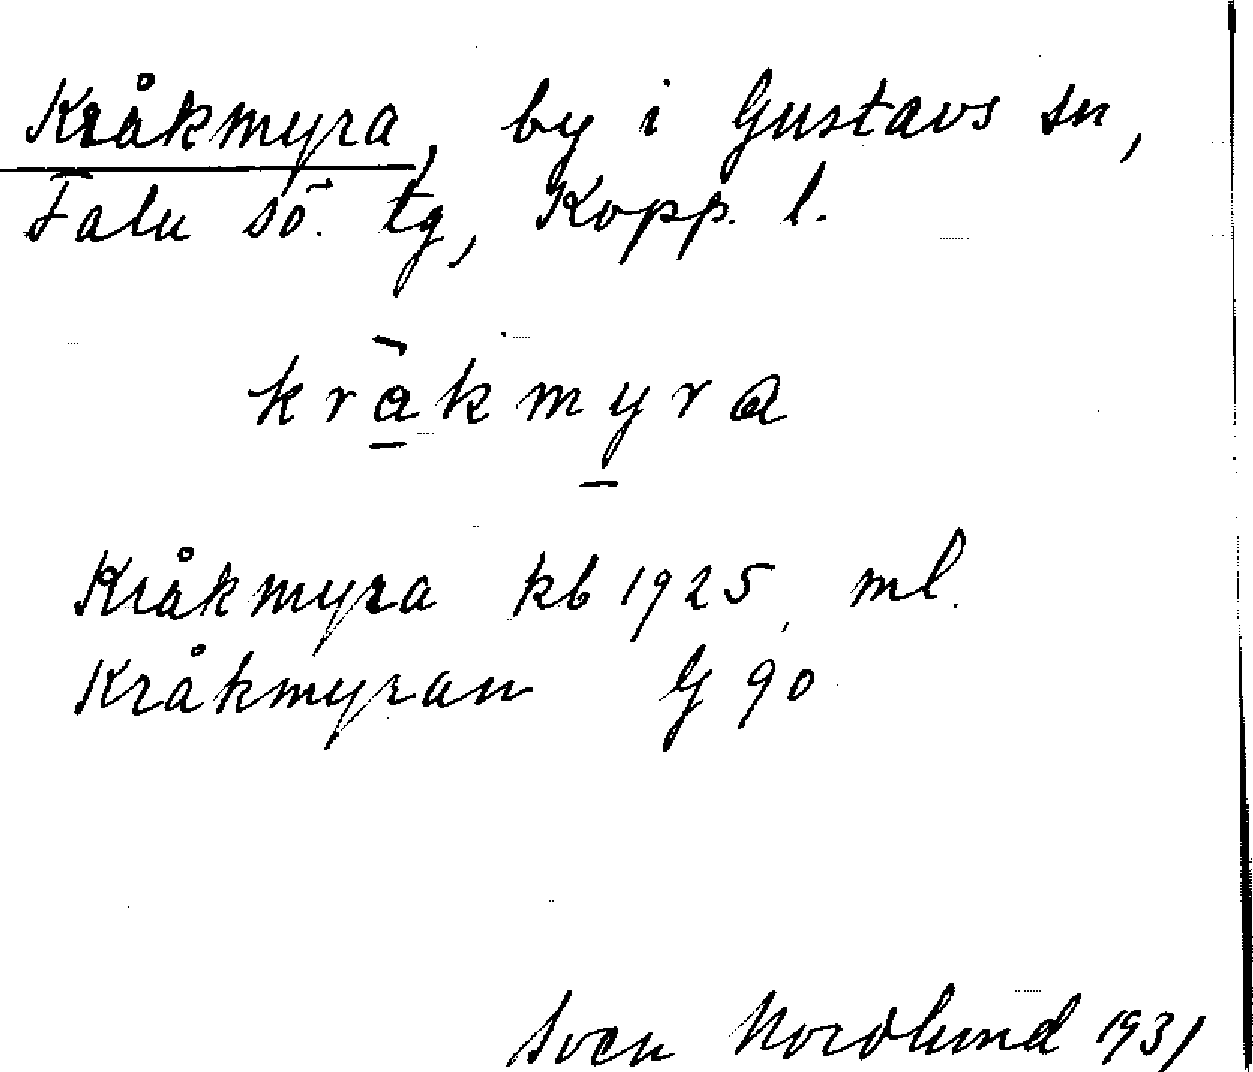 Kråkmyra, by i Gustavs sn,
Falu sö. tg, Kopp. l.
kråkmyra
Kråkmyra kb 1925, ml.
Kråkmyran G 90
Sven Nordlund 1931